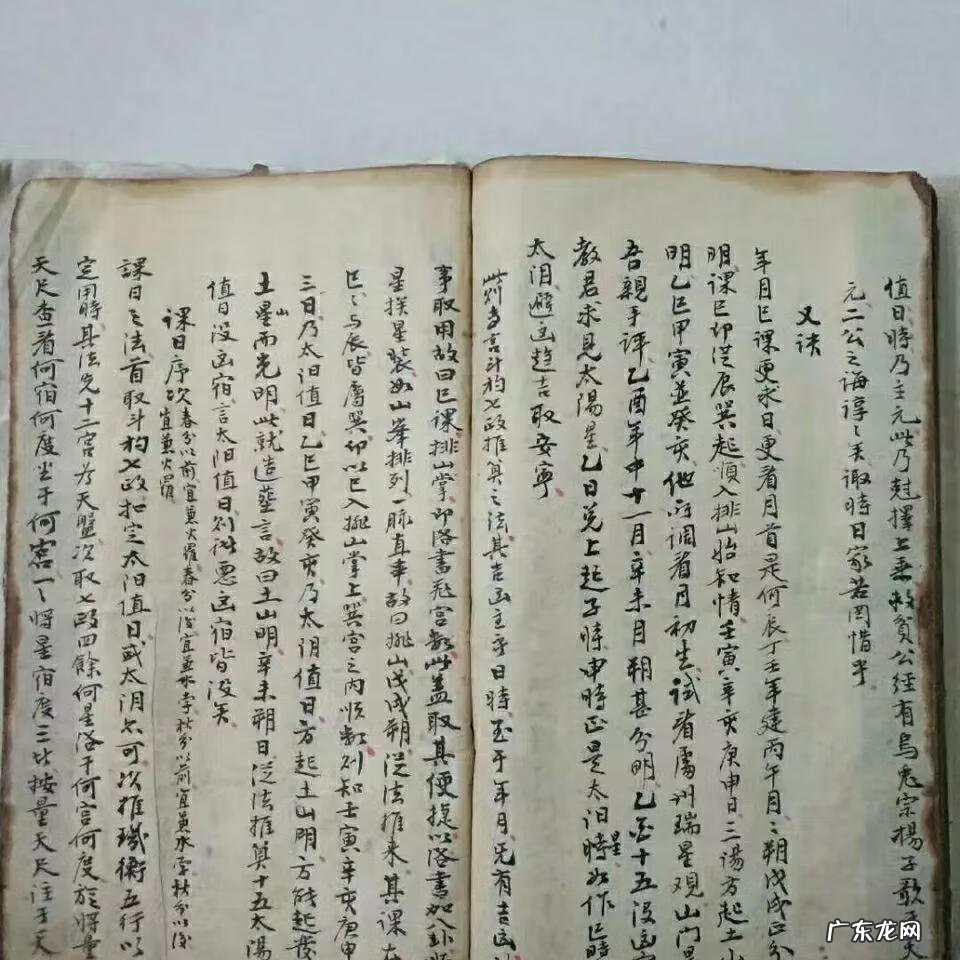 值日時乃主元此乃尅擇上乘救貧公經有烏兎宗楊子歌
元二公之誨諄々美諏時日家若罔惜乎
又诀
年月已课更求日更看月首是何辰丁壬年建丙午月々朔戊戌正分
明课已印從辰巽起順入排山始知情壬寅辛亥庚申日三湯方起土
明乙巳甲寅並癸亥他府調看月初生試看處州瑞星观山门
吾親手详乙酉年中十一月辛未月朔甚分明乙至十五没凶
教君求見太陽星乙日兑上起子時申時正是太阳時星如作巳時
太阳避凶趋吉取安寧
此刻多言斗杓七政推算之法其吉凶主乎日時至于年月无有吉凶
事取用故曰巳课排山掌即洛書飛宫訣此盖取其便捷以洛書加八卦
星挨星裝如山峯排列一脉直奉故曰排山戊戌朔從法推来其课在
巳々与辰皆屬巽卯以巳入排山掌上巽宫之内順數则知壬寅辛亥庚申
三日乃太阳值日乙巳甲寅癸亥乃太阴值日方起土山明方能起發
土星山而光明此就造葬言故曰土山明辛未朔日從法推算十五太陽
值日没凶宿言太阳值日则従惡凶宿皆没矣
课日序次春分以前宜兼火羅春分以後宜兼水孛秋分以前宜兼水孛秋分以後宜兼火羅
課日之法首取斗杓七政扣定太阳值日或太阴亦可次推璣衡五行以
定用時其法先十二宫为天盤次取七政四餘何星落于何宫何度於将量
天尺查看何宿何度坐于何宫一々将星宿度三比按量天尺注于天
广东龙网